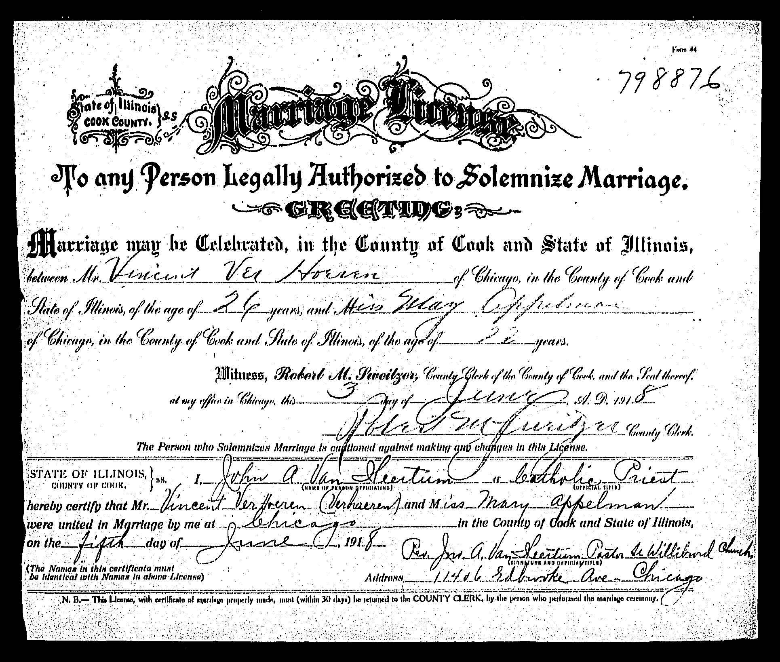 Form 44
798876
State of Illinois
COOK COUNTY. } SS
Marriage License
To any Person Legally Authorized to Solemnize Marriage.
GREETING:
Marriage may be Celebrated, in the County of Cook and State of Illinois,
between Mr. Vincent Ver Hoeren of Chicago, in the County of Cook and
State of Illinois, of the age of 26 years, and Miss May Appelman
of Chicago, in the County of Cook and State of Illinois, of the age of 22 years.
Witness, Robert M. Sweitzer, County Clerk of the County of Cook, and the Seal thereof,
at my office in Chicago, this 3 day of June A. D. 1918
Robert M Sweitzer County Clerk.
The Person who Solemnizes Marriage is cautioned against making any changes in this License.
STATE OF ILLINOIS, } ss. I, John A. Van Heertum a Catholic Priest
COUNTY OF COOK, (NAME OF PERSON OFFICIATING) (OFFICIAL TITLE)
hereby certify that Mr. Vincent VerHoeren (Verhaeren) and Miss Mary Appelman
were united in Marriage by me at Chicago in the County of Cook and State of Illinois,
on the fifth day of June 1918
Rev. Jno. A. Van Heertum Pastor St Willibrord Church
(SIGNATURE AND OFFICIAL TITLE)
(The Names in this certificate must
be identical with Names in above License)
Address 11406 Edbrooke Ave Chicago
N. B.— This License, with certificate of marriage properly made, must (within 30 days) be returned to the COUNTY CLERK, by the person who performed the marriage ceremony.